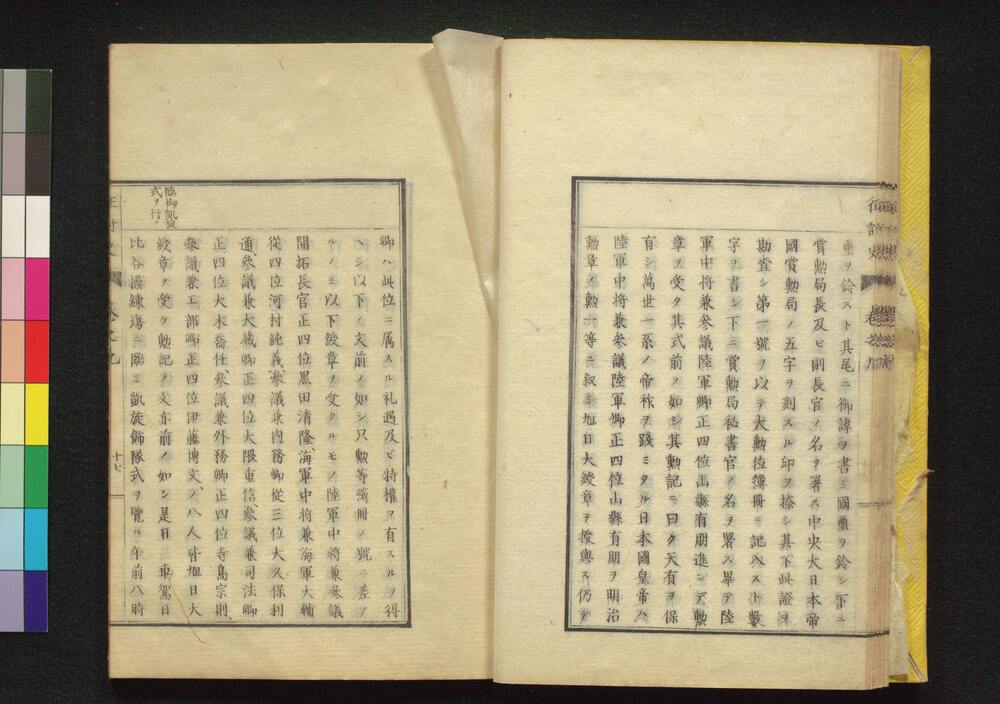 璽ヲ鈐スト其尾ニ御諱ヲ書シ國璽ヲ鈐シ下ニ
賞勲局長及ヒ副長官ノ名ヲ署ス中央大日本帝
國賞勲局ノ五字ヲ刻スル印ヲ捺シ其下此證ヲ
勘査シ第一號ヲ以テ大勲位簿冊ニ記入スト數
字ヲ書シ下ニ賞勲局秘書官ノ名ヲ署ス畢テ陸
軍中将兼参議陸軍卿正四位山縣有朋進ンテ勲
章ヲ受ク其式前ノ如シ其勲記ニ曰ク天有ヲ保
有シ萬世一系ノ帝祚ヲ踐ミタル日本國皇帝ハ
陸軍中将兼参議陸軍卿正四位山縣有朋ヲ明治
勲章ノ勲一等ニ叙シ旭日大綬章ヲ授與ス仍テ
征討史 卷之九
卿ハ此位ニ属スル礼遇及ヒ特權ヲ有スルヲ得
ヘシ以下ノ文前ノ如シ只勲等簿冊ノ號ニ差ア
ルノミ以下綬章ヲ受クルモノ陸軍中将兼参議
開拓長官正四位黒田清隆、海軍中将兼海軍大輔
從四位河村純義、参議兼内務卿從三位大久保利
通、参議兼大蔵卿正四位大隈重信、参議兼司法卿
正四位大木喬任、参議兼外務卿正四位寺島宗則、
参議兼工部卿正四位伊藤博文ノ八人皆旭日大
綬章ヲ受ケ勲記ノ文亦前ノ如シ是日 車駕日
比谷操練場ニ臨ミ凱旋飾隊式ヲ覽ル午前八時
臨御凱旋
式ヲ行フ
卷之九
十七